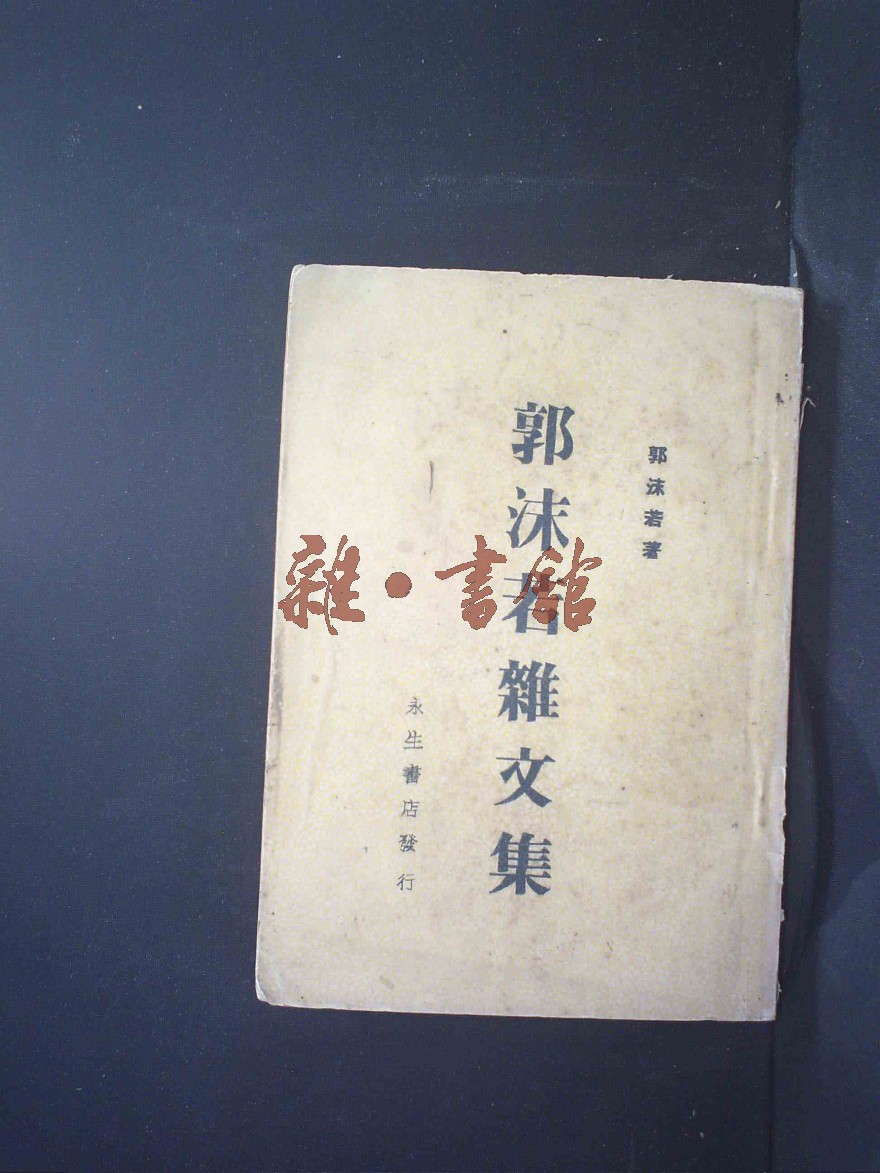 郭沫若著
郭沫若雜文集
永生書店發行
雜·書館